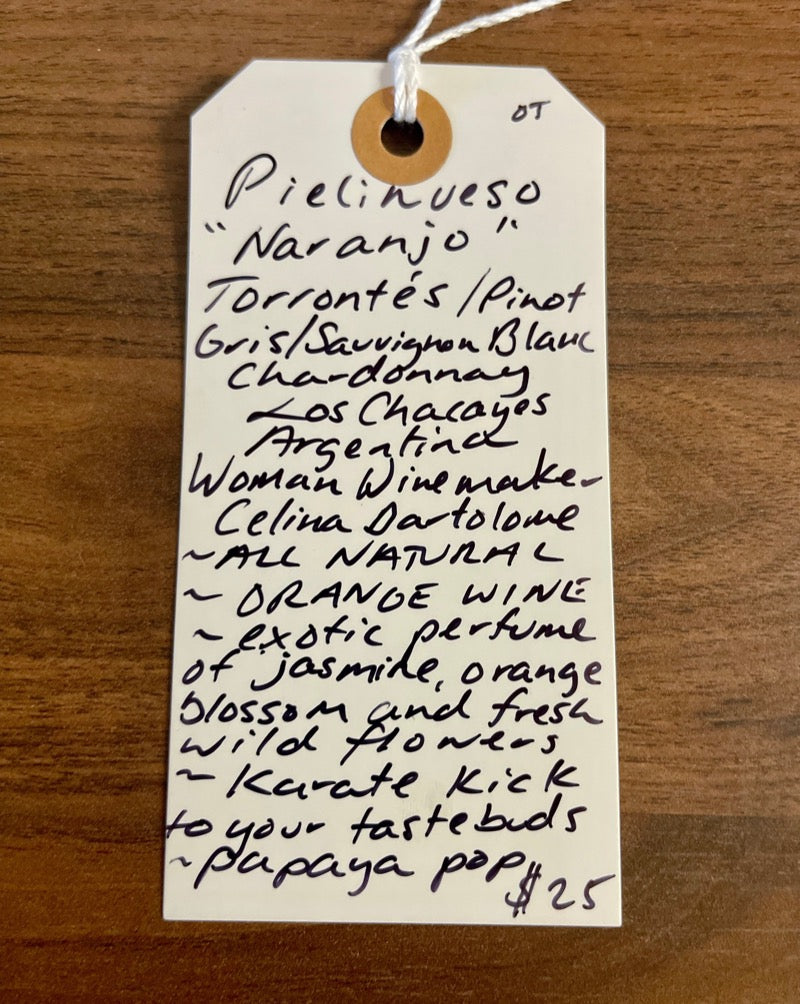 OT
Pielihueso
"Naranjo"
Torrontés/Pinot
Gris/Sauvignon Blanc
Chardonnay
Los Chacayes
Argentina
Woman Winemaker
Celina Bartolome
~ALL NATURAL
~ ORANGE WINE
~ exotic perfume
of jasmine, orange
blossom and fresh
wild flowers
~ Karate Kick
to your tastebuds
~papaya pop
$25